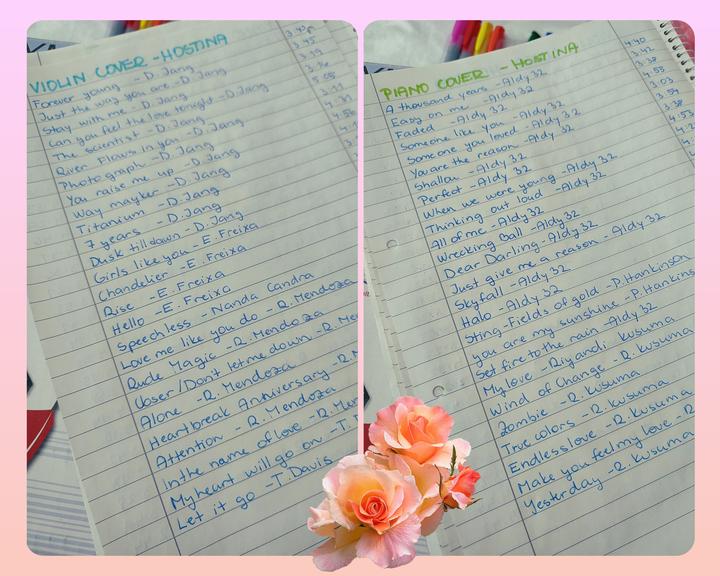 VIOLIN COVER - HOSTINA
Forever young - D. Jang
Just the way you are - D. Jang
Stay with me - D. Jang
Can you feel the love tonight - D. Jang
The scientist - D. Jang
River Flows in you - D. Jang
Photograph - D. Jang
You raise me up - D. Jang
Way mayker - D. Jang
Titanium - D. Jang
7 years - D. Jang
Dusk till down - D. Jang
Girls like you - E. Freixa
Chandelier - E. Freixa
Rise - E. Freixa
Hello - E. Freixa
Speechless - Nanda Candra
Love me like you do - R. Mendoza
Rude Magic - R. Mendoza
Closer / Don't let me down - R. Me
Alone - R. Mendoza
Heartbreak Anniversary - R. M
Attention - R. Mendoza
In the name of love - R. Men
My heart will go on - T.
Let it go - T. Davis
PIANO COVER - HOSTINA
A thousand years - Aldy 32 4:40
Easy on me - Aldy 32 3:42
Faded - Aldy 32 3:38
Someone like You - Aldy 32 4:55
Someone you loved - Aldy 32 3:03
You are the reason - Aldy 32 3:54
Shallow - Aldy 32 3:38
Perfect - Aldy 32 4:53
When we were young - Aldy 32
Thinking out loud - Aldy 32
All of me - Aldy 32
Wrecking Ball - Aldy 32
Dear Darling - Aldy 32
Just give me a reason - Aldy 32
Skyfall - Aldy 32
Halo - Aldy 32
Sting - Fields of gold - P. Hankinson
you are my sunshine - P. Hankins
Set fire to the rain - Aldy 32
My love - Riyandi Kusuma
Wind of Change - R. Kusuma
Zombie - R. Kusuma
True colors - R. Kusuma
Endless love - R. Kusuma
Make you feel my love - R
Yesterday - R. Kusuma